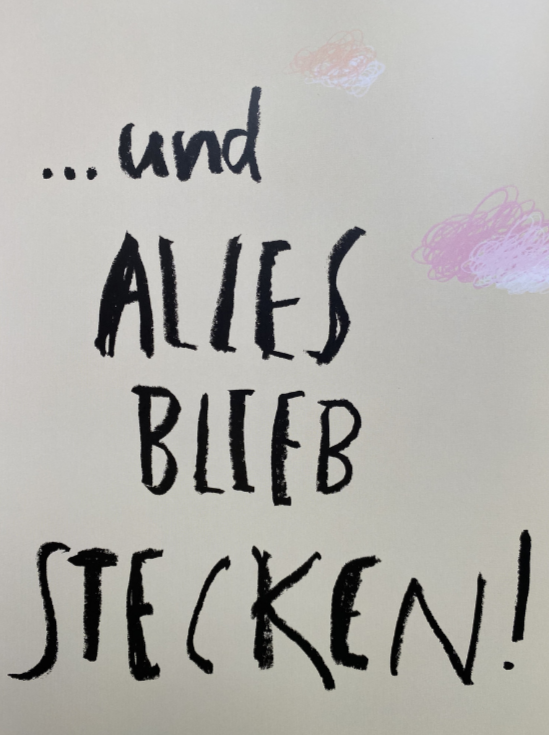 ...und
ALLES
BLIEB
STECKEN!